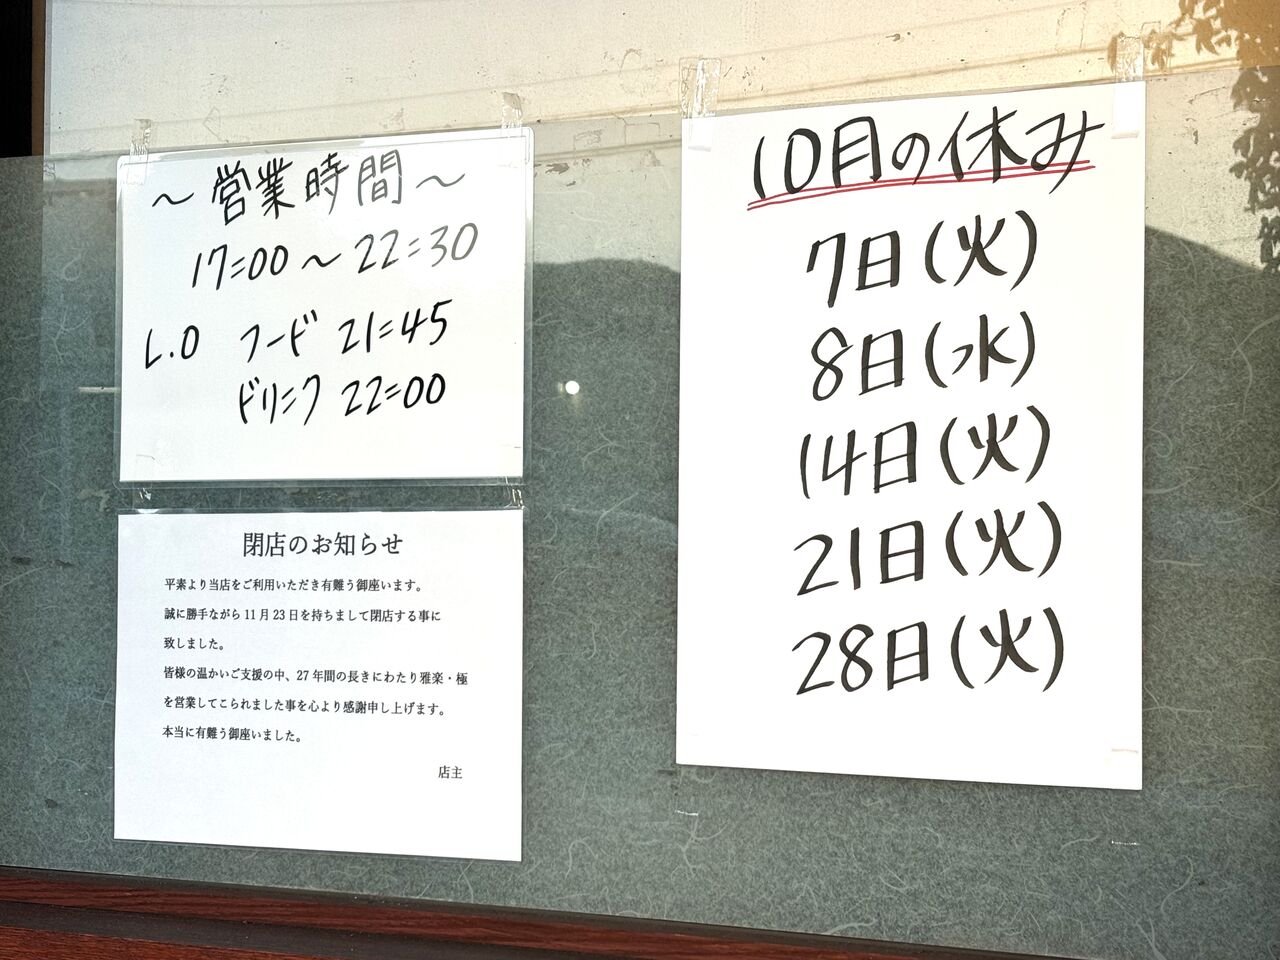 ～営業時間～
17=00～22=30
L.O フード 21=45
ドリンク 22=00
閉店のお知らせ
平素より当店をご利用いただき有難う御座います。
誠に勝手ながら 11 月 23 日を持ちまして閉店する事に
致しました。
皆様の温かいご支援の中、27 年間の長きにわたり雅楽・極
を営業してこられました事を心より感謝申し上げます。
本当に有難う御座いました。
店主
10月の休み
7日(火)
8日(水)
14日(火)
21日(火)
28日(火)